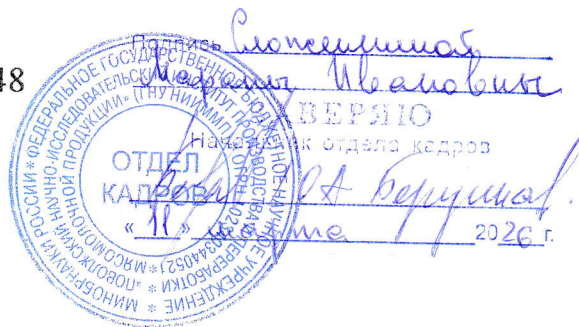 48
Подпись Сложенкиной
Марины Ивановны
ЗАВЕРЯЮ
Начальник отдела кадров
«11» марта 2026 г.
МИНОБРНАУКИ РОССИИ * ФЕДЕРАЛЬНОЕ ГОСУДАРСТВЕННОЕ БЮДЖЕТНОЕ НАУЧНОЕ УЧРЕЖДЕНИЕ *
«ПОВОЛЖСКИЙ НАУЧНО-ИССЛЕДОВАТЕЛЬСКИЙ ИНСТИТУТ ПРОИЗВОДСТВА И ПЕРЕРАБОТКИ МЯСОМОЛОЧНОЙ ПРОДУКЦИИ»
ОТДЕЛ
КАДРОВ